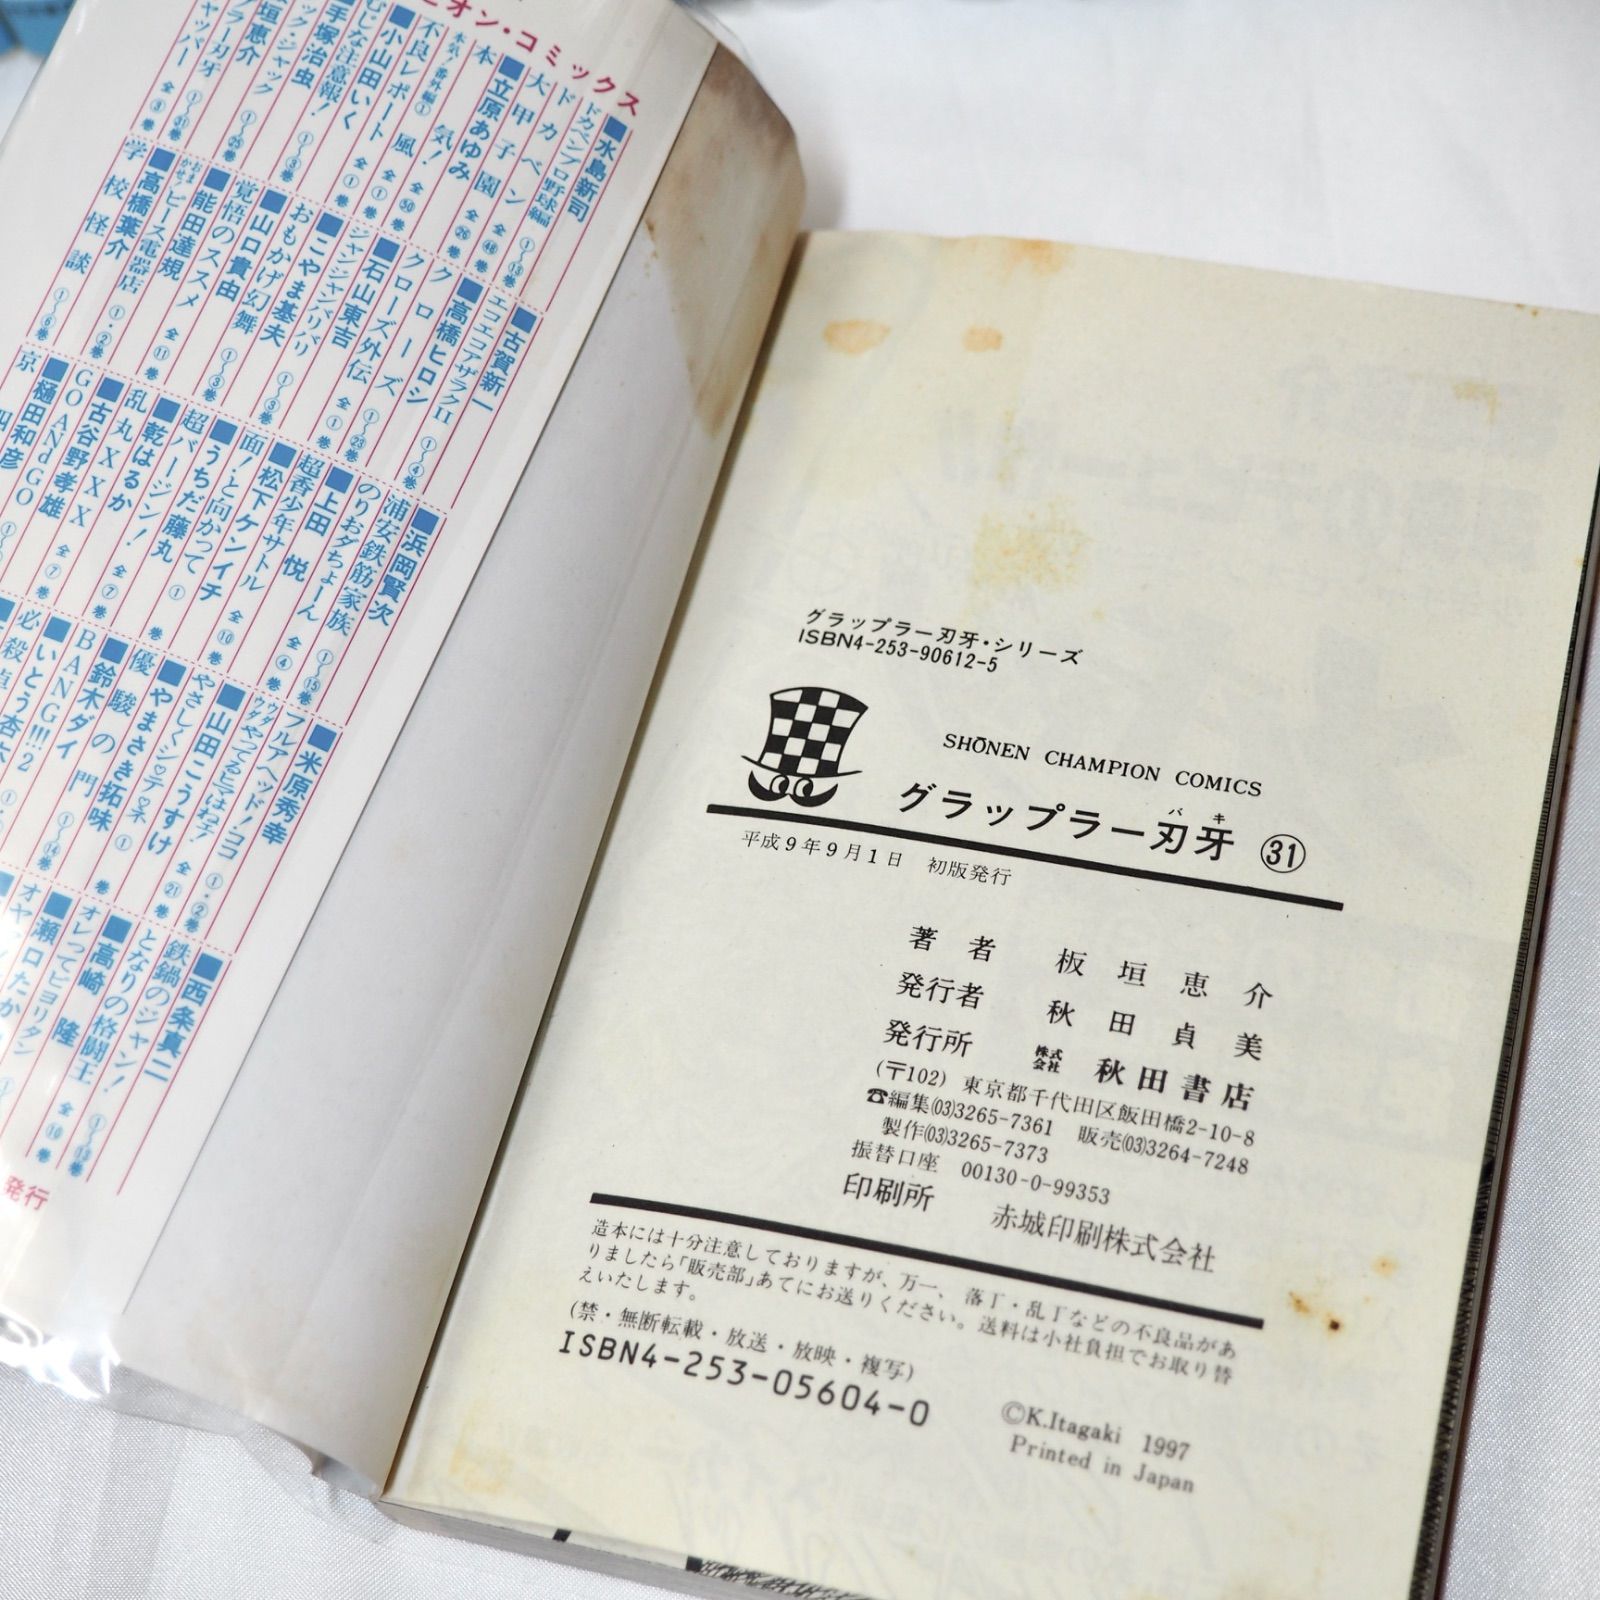 グラップラー刃牙・シリーズ
ISBN4-253-90612-5
SHŌNEN CHAMPION COMICS
バキ
グラップラー刃牙 ㉛
平成9年9月1日 初版発行
著者 板垣恵介
発行者 秋田貞美
発行所 株式会社 秋田書店
(〒102) 東京都千代田区飯田橋2-10-8
☎編集(03)3265-7361 販売(03)3264-7248
製作(03)3265-7373
振替口座 00130-0-99353
印刷所 赤城印刷株式会社
造本には十分注意しておりますが、万一、落丁・乱丁などの不良品があ
りましたら「販売部」あてにお送りください。送料は小社負担でお取り替
えいたします。
(禁・無断転載・放送・放映・複写)
ISBN4-253-05604-0
©K.Itagaki 1997
Printed in Japan
オン・コミックス
■水島新司
ドカベンプロ野球編 ①〜⑬巻
ドカベン 全㊽巻
大甲子園 全㉖巻
■立原あゆみ
本気! 全㊿巻
本気!番外編①
不良レポート 風 全①巻
■小山田いく
むじな注意報! 全①巻
手塚治虫
ック・ジャック ①〜㉕巻
垣恵介
ラー刃牙 ①〜㉛巻
ャッパー 全③巻
■古賀新一
エコエコアザラクII ①〜④巻
■高橋ヒロシ
クローズ ①〜㉓巻
クローズ外伝 全①巻
■石山東吉
ジャンジャンバリバリ ①〜③巻
■こやま基夫
おもかげ幻舞 ①〜③巻
■山口貴由
覚悟のススメ 全⑪巻
■能田達規
おまかせ!ピース電器店 ①・②巻
■高橋葉介
学校怪談 ①〜⑥巻
■浜岡賢次
浦安鉄筋家族 ①〜⑮巻
のりおダちょーん 全④巻
■上田 悦
超香少年サトル 全⑩巻
■松下ケンイチ
面!と向かって ①巻
■うちだ藤丸
超バージン! 全⑦巻
■乾はるか
乱丸XXX 全⑦巻
■古谷野孝雄
GO ANd GO
■樋田和彦
京
■米原秀幸
フルアヘッド!ココ ①・②巻
ウダウダやってるヒマはねェ! 全㉑巻
■山田こうすけ
やさしくシ♡テ♡ネ ①巻
■やまさき拓味
優駿の門 ①〜⑭巻
■鈴木ダイ
BANG!!!2
■いとう杏六
必殺
■西条真二
鉄鍋のジャン! ①〜⑬巻
となりの格闘王 全⑩巻
■高崎 隆
オレってピヨリタン
■瀬口たか
オヤ
発行